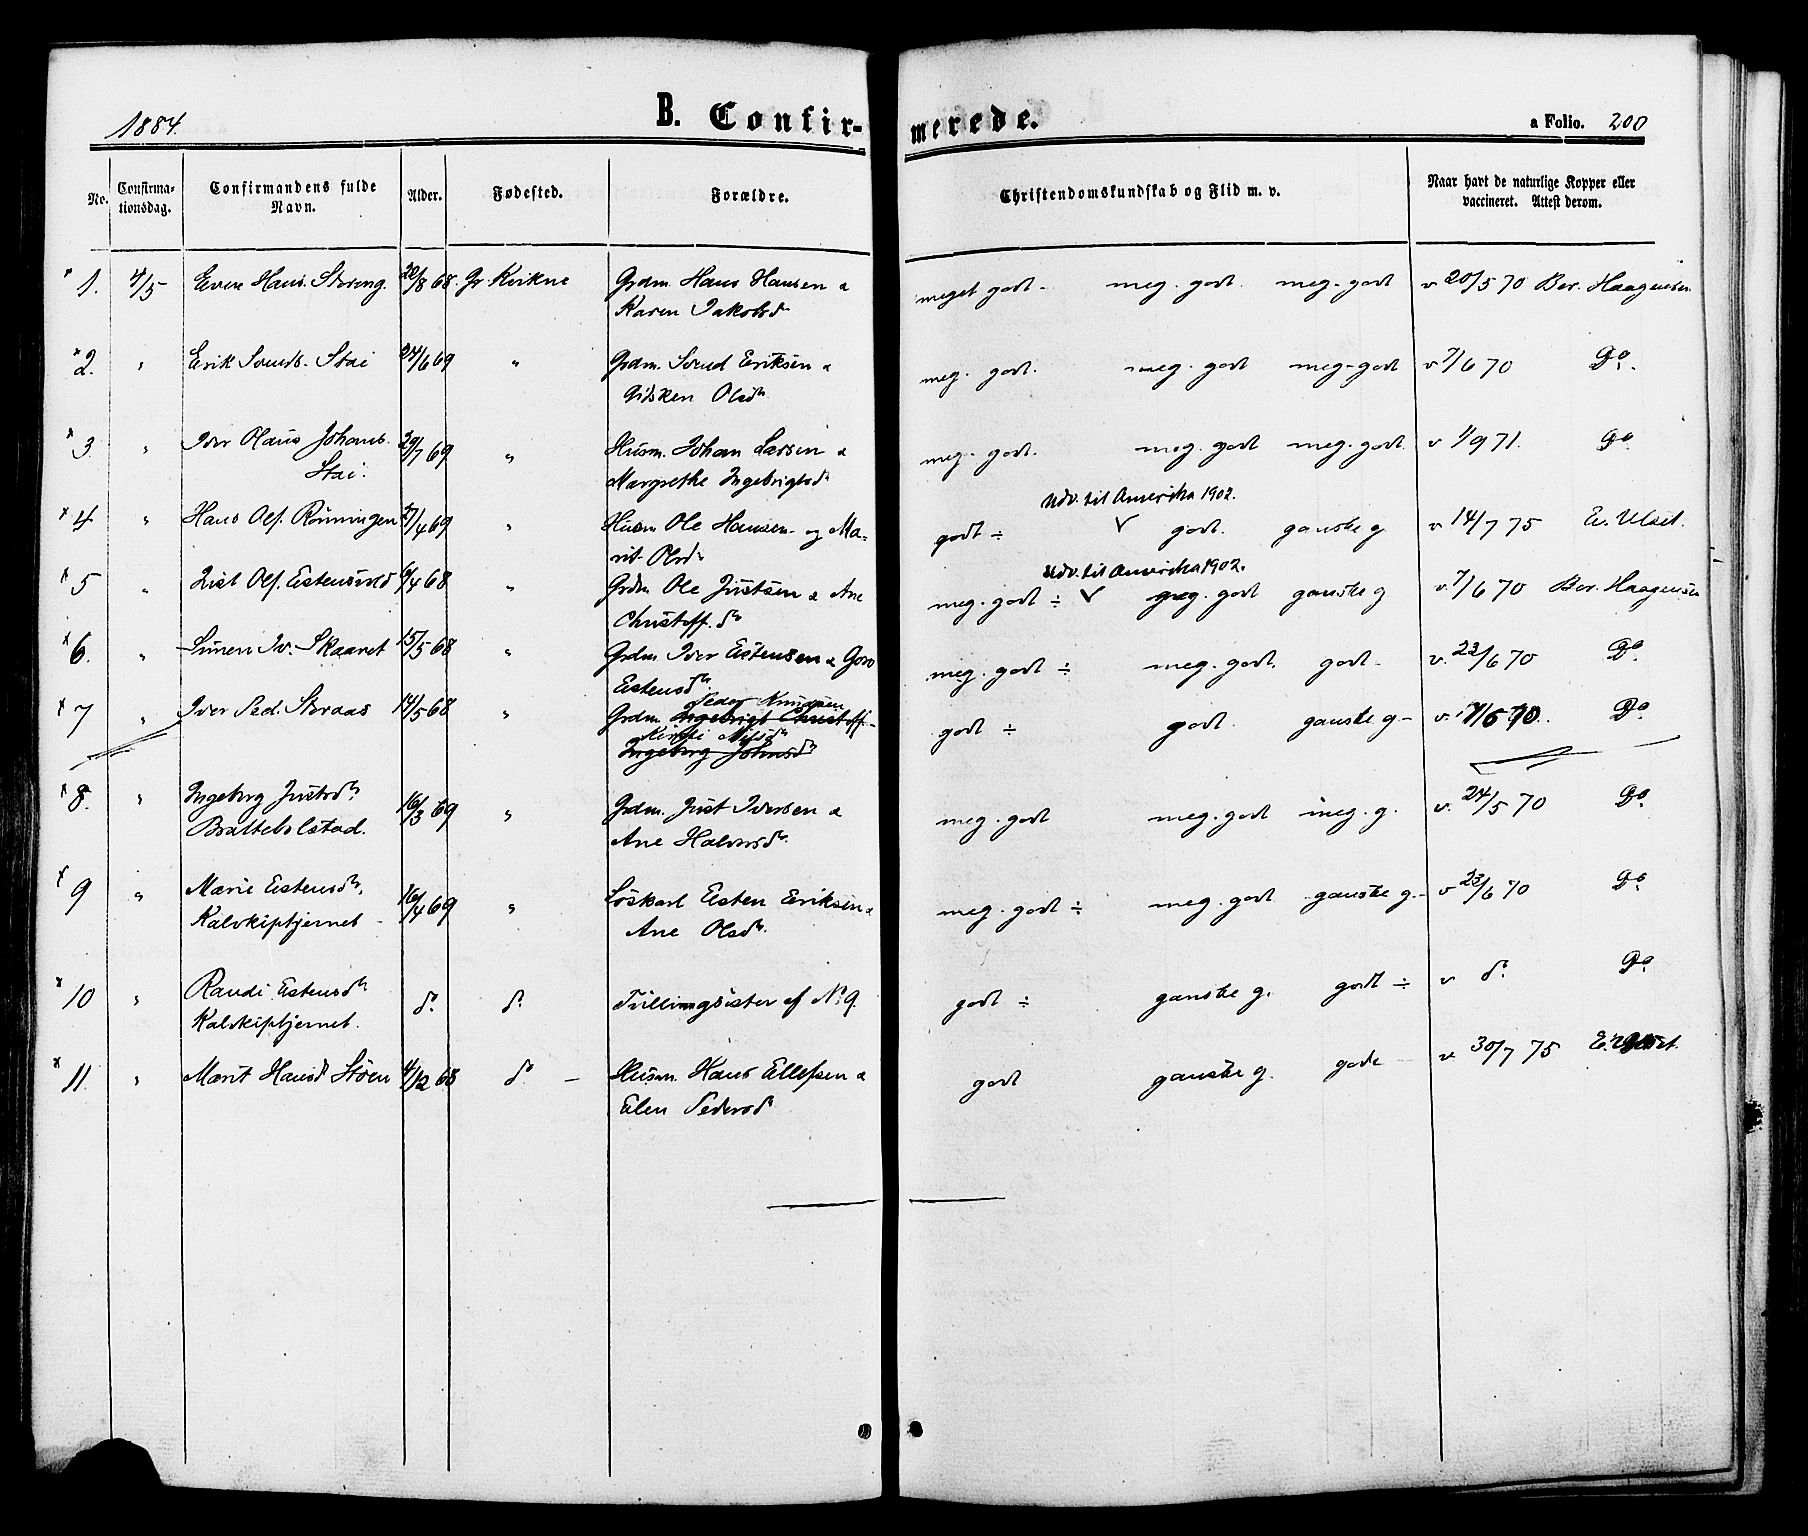 1884. B. Confir- merede. a Folio. 200
No. Confirma- tionsdag. Confirmandens fulde Navn. Alder. Fødested. Forældre. Christendomskundskab og Flid m. v. Naar havt de naturlige Kopper eller vaccineret. Attest derom.
1. 4/5 Even Hans. Støreng. 20/8 68. Gr. Kvikne Grdm. Hans Hansen & meget godt - meg. godt. meg. godt v 20/5 70 Ber. Haagensen
Karen Jakobsd
2. " Erik Svends. Stai 24/6 69 " Grdm. Svend Eriksen & meg. godt. meg. godt meg. godt v 7/6 70 Do.
Gidsken Olsdr.
3. " Iver Olaus Johans. 29/7 69 " Husm. Johan Larsen & meg. godt. meg. godt meg. godt. v 1/9 71. Do
Stai. Margrethe Ingebrigtsdr
Udv. til Amerika 1902.
4 " Hans Ols. Rønningen 21/4 69 " Husm Ole Hansen og Ma= godt ÷ ✓ godt. ganske g v 14/7 75 E. Ulset.
rit Olsdr
Udv. til Amerika 1902.
5 " Ols. Estensvd /4 68 " Grdm. Ole Justsen & Ane meg. godt ÷ ✓ meg. godt ganske g v. 7/6 70 Ber. Haagensen
Christoff. dr
6. " Simen Iv. Skaaret 15/5 68 " Grdm. Iver Estensen & Goro meg. godt ÷ meg. godt. godt - v. 23/6 70 Do.
Estensdr.
Peder Knudsen
7 " Iver Ped. Storaas 14/5 68 " Grdm. Ingebrigt Christoff.- godt ÷ godt. ganske g - v. 7/6 70. Do
Kirsti Nilsdr
Ingeborg Johnsdr
8. " Ingebrg Justsdr. 16/3 69 " Grdm. Just Iversen & meg. godt meg. godt meg. g. v. 24/5 70 Do.
Brattebolstad. Ane Halvorsdr.
9 " Marie Estensdr. 16/4 69 " Løskarl Esten Eriksen & meg. godt ÷ meg. godt ganske g - v 23/6 70 Do.
Kalvkiptjernet - Ane Olsdr.
10 " Randi Estensdr do. do. Tvillingsister af No 9. godt ÷ ganske g. godt ÷ v do. Do.
Kalvkiptjernet.
11. " Marit Hansd Støen 4/12 68 do - Husm. Hans Ellefsen & godt ganske g. godt v. 30/7 75 E. Ulset.
Elen Pedersdr